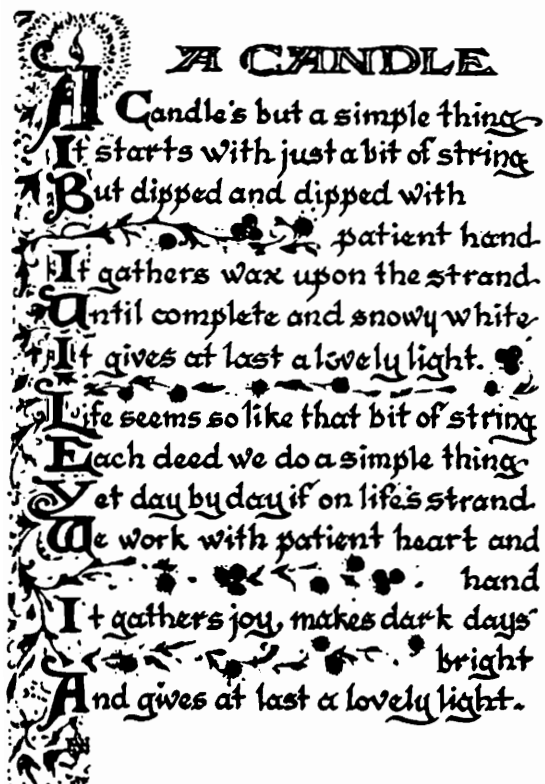 A CANDLE
A Candle's but a simple thing
It starts with just a bit of string
But dipped and dipped with
patient hand
It gathers wax upon the strand
Until complete and snowy white
It gives at last a lovely light.
Life seems so like that bit of string
Each deed we do a simple thing
Yet day by day if on life's strand
We work with patient heart and
hand
It gathers joy, makes dark days
bright
And gives at last a lovely light.